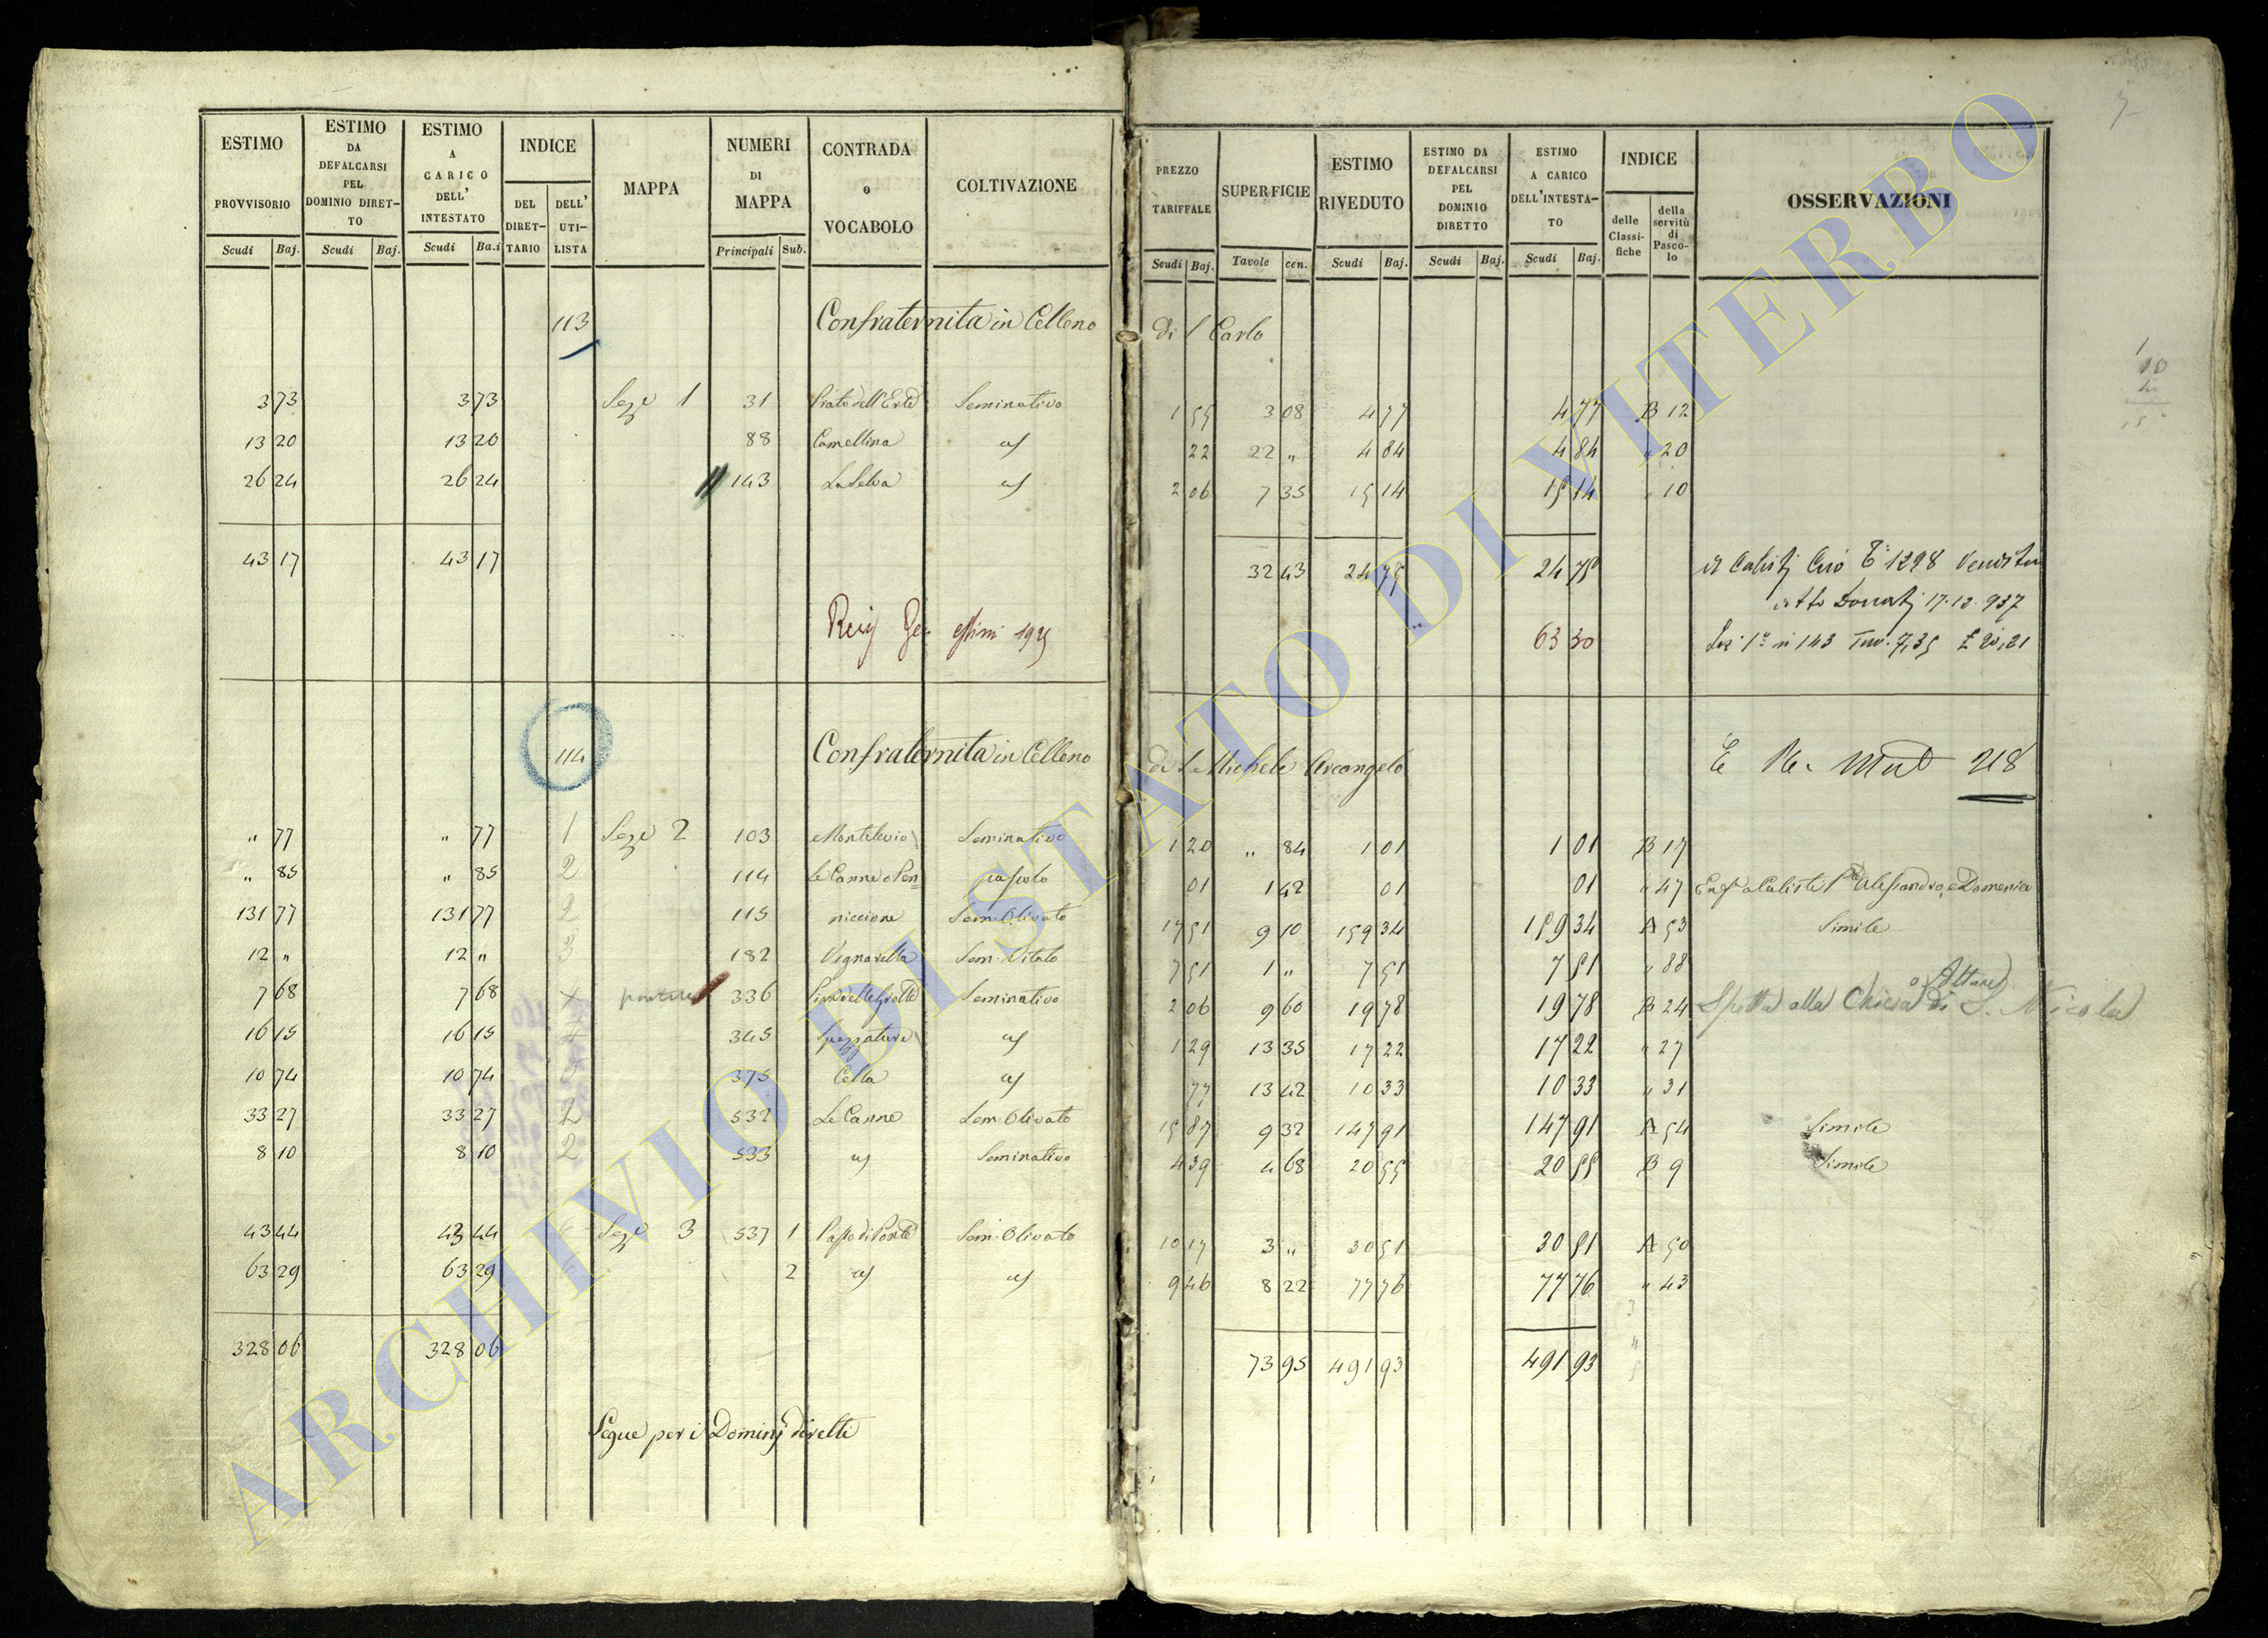 ESTIMO PROVVISORIO Scudi Baj. | ESTIMO DA DEFALCARSI PEL DOMINIO DIRET-TO Scudi Baj. | ESTIMO A CARICO DELL' INTESTATO Scudi Ba.i | INDICE DEL DIRET-TARIO DELL' UTI-LISTA | MAPPA | NUMERI DI MAPPA Principali Sub. | CONTRADA o VOCABOLO | COLTIVAZIONE | PREZZO TARIFFALE Scudi Baj. | SUPERFICIE Tavole cen. | ESTIMO RIVEDUTO Scudi Baj. | ESTIMO DA DEFALCARSI PEL DOMINIO DIRETTO Scudi Baj. | ESTIMO A CARICO DELL'INTESTA-TO Scudi Baj. | INDICE delle Classi-fiche della servitù di Pasco-lo | OSSERVAZIONI
7
113 Confraternita in Celleno di S Carlo
3 73 3 73 Seze 1 31 Prato dell'Este Seminativo 1 55 3 08 4 77 4 77 B 12
13 20 13 20 88 Camellina id 22 22 " 4 84 4 84 " 20
26 24 26 24 143 La Selva id 2 06 7 35 15 14 15 14 " 10
43 17 43 17 32 43 24 75 24 75
1298 Vendita
atto Donati 17.12.937
Rev Gen estimi 1925 63 30 Sez 1ª n 143 Tav. 7,35 £ 20,21
114 Confraternita in Celleno di S. Michele Arcangelo 218
" 77 " 77 1 Seze 2 103 Montelevio Seminativo 1 20 " 84 1 01 1 01 B 17
" 85 " 85 2 114 Le Canne o Pen= pascolo 01 1 42 01 01 " 47 Enf a Caliste Alessandro, e Domenico
131 77 131 77 2 115 niccione Sem. Olivato 17 51 9 10 159 34 159 34 A 53 Simile
12 " 12 " 3 182 Vignarella Sem. Vitato 7 51 1 " 7 51 7 51 " 88
7 68 7 68 x 336 Piano delle Grotte Seminativo 2 06 9 60 19 78 19 78 B 24 Spetta alla Chiesa o Altare di S. Nicola
16 15 16 15 345 Spezzature id 1 29 13 35 17 22 17 22 " 27
10 74 10 74 375 Cella id 77 13 42 10 33 10 33 " 31
33 27 33 27 2 532 Le Canne Sem. Olivato 15 87 9 32 147 91 147 91 A 54 Simile
8 10 8 10 2 533 id Seminativo 4 39 4 68 20 55 20 55 B 9 Simile
43 44 43 44 Seze 3 537 1 Passo di Ponte Sem. Olivato 10 17 3 " 30 51 30 51 A 50
63 29 63 29 2 id id 9 46 8 22 77 76 77 76 " 43
328 06 328 06 73 95 491 93 491 93
Segue per i Dominj diretti
ARCHIVIO DI STATO DI VITERBO